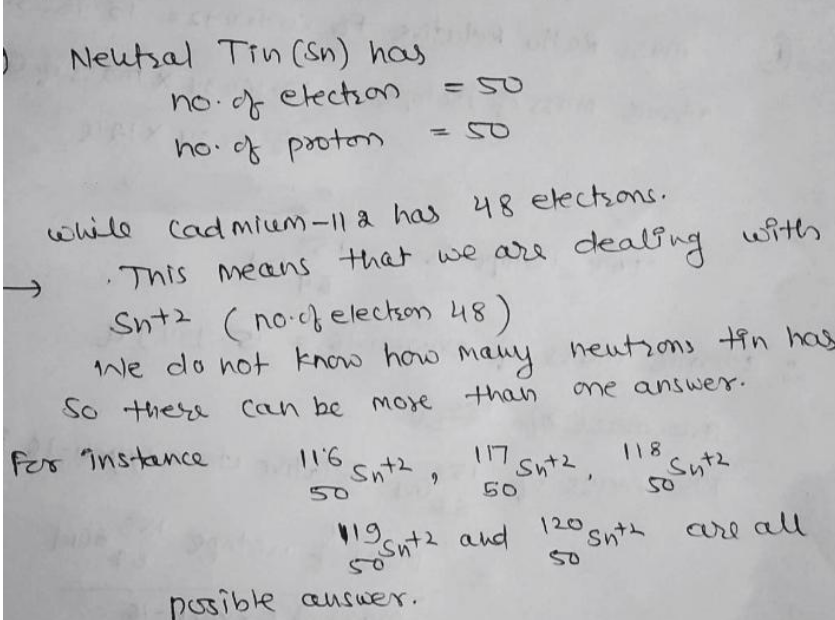 ) Neutral Tin (Sn) has
no. of electron = 50
no. of proton = 50
while Cadmium-112 has 48 electrons.
→ . This means that we are dealing with
Sn+2 ( no. of electron 48 )
We do not know how many neutrons tin has
So there can be more than one answer.
For instance 116 50 Sn+2 , 117 50 Sn+2 , 118 50 Sn+2
119 50 Sn+2 and 120 50 Sn+2 are all
possible answer.